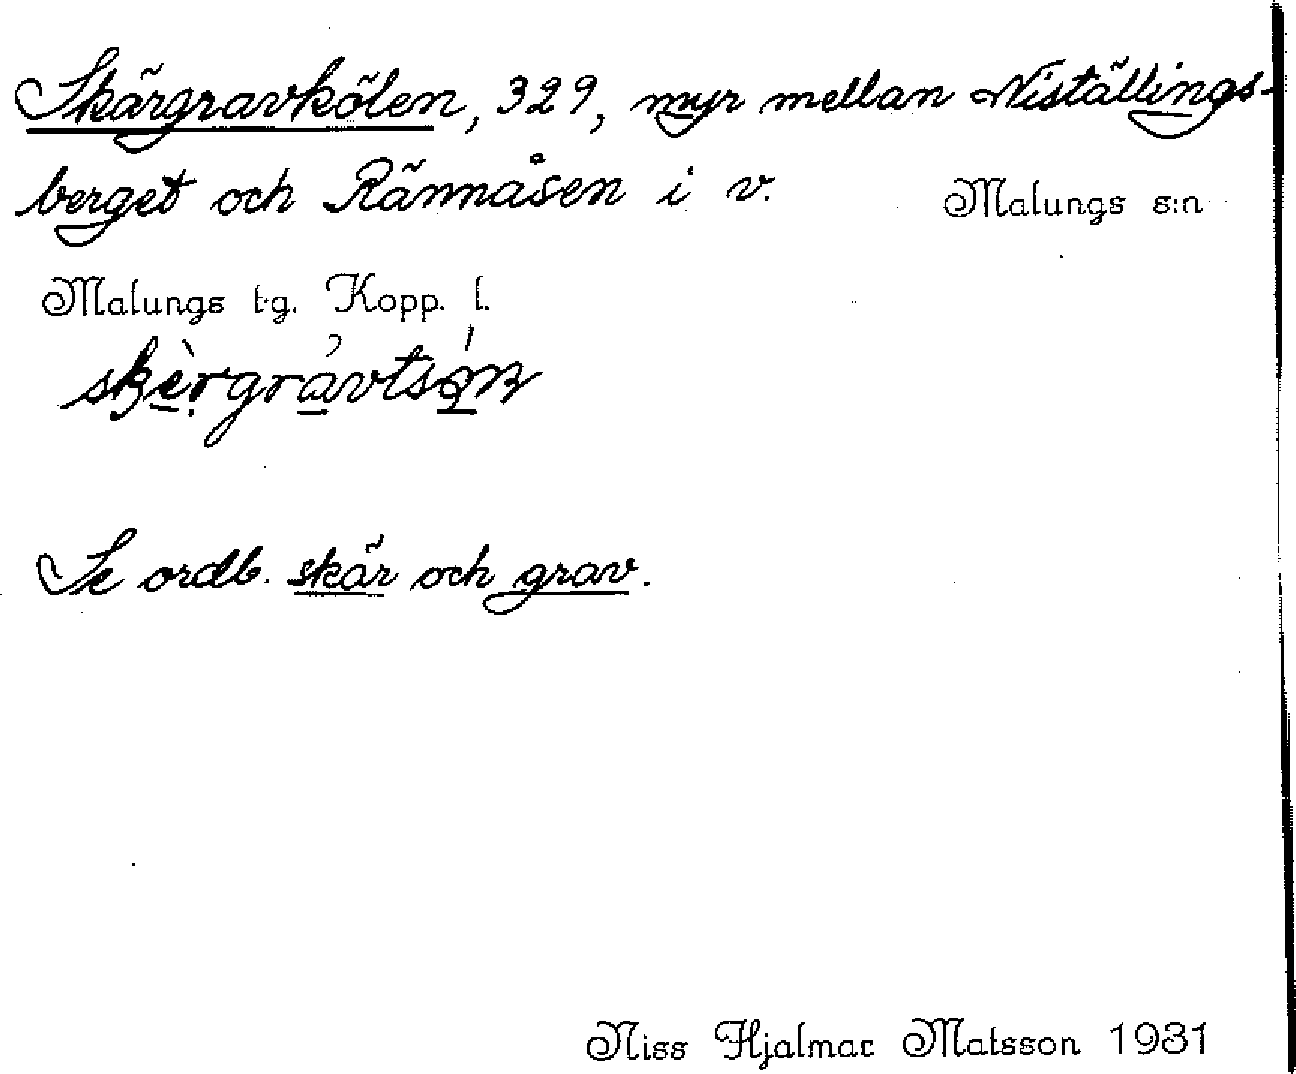 Skärgravkölen, 329, myr mellan Niställings-
berget och Rännåsen i v. Malungs s:n
Malungs tg. Kopp. l.
Se ordb. skär och grav.
Niss Hjalmar Matsson 1931